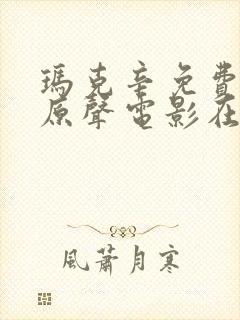 瑪克辛免費
原聲電影在
風蕭月寒